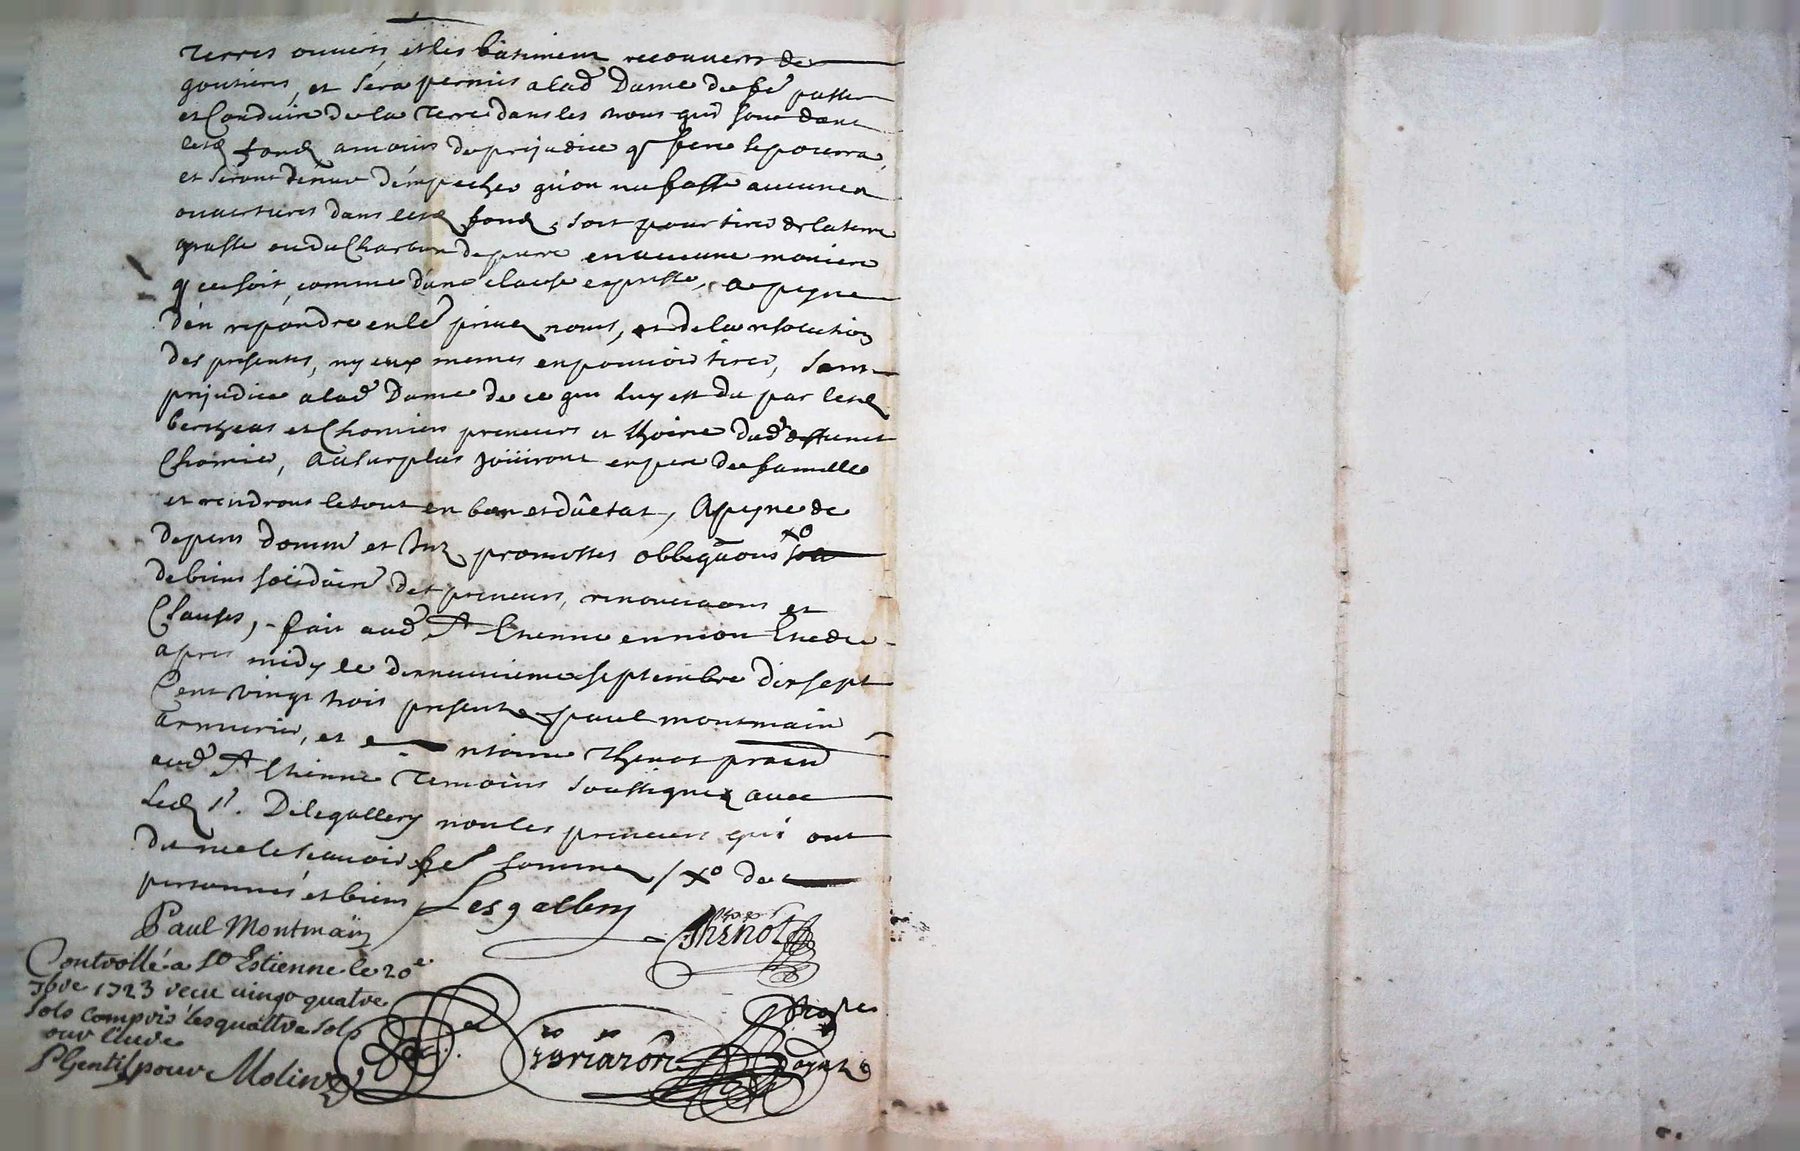 terres ouvers, et les bâtiment recouvers de
goutieres, et sera permis a lad.e Dame de fe passer
et Conduire de la terre dans les qui sont dans
lesd fond a moins de prejudice q fere se pourra,
et seront tenus d'émpecher qu'on ne fasse aucunes
ouvertures dans lesd fond, soit pour tirer de la terre
grasse ou du Charbon de pierre en aucune maniere
q ce soit, comme d'une clause expresse, a peyne
d'én repondre en lé privez noms, et de la resolution
des presentes, ny eux memes en pouvoir tirer, sans
prejudice a lad.e Dame de ce que luy est du par lesd
bertheas et Chomier preneurs et dud deffunct
Chomier, au surplus joüiront en pere de famille
et rendront le tout en bon et dû état, a peyne de
depens domm et promesses obligaons xo
de biens solidaire des preneurs, renonciaons et
Clauses, fait aud St Etienne en mon Etude
apres midy le dixneuvieme septembre dix sept
Cent vingt trois presents Paul montmain
armurier, et ntoine thenot pratn
aud St Etienne temoins soussignez avec
led sr. De lesgallery non les preneurs qui ont
dit ne le scavoir fe sommez / xo de
personnes et biens
Lesgallery
Paul Montmaiñ
Thenot
Controllé a St Estienne le 20e
7bre 1723 receu vingt quatre
sols compris les quattre sols
our
P Gentil pour Molin